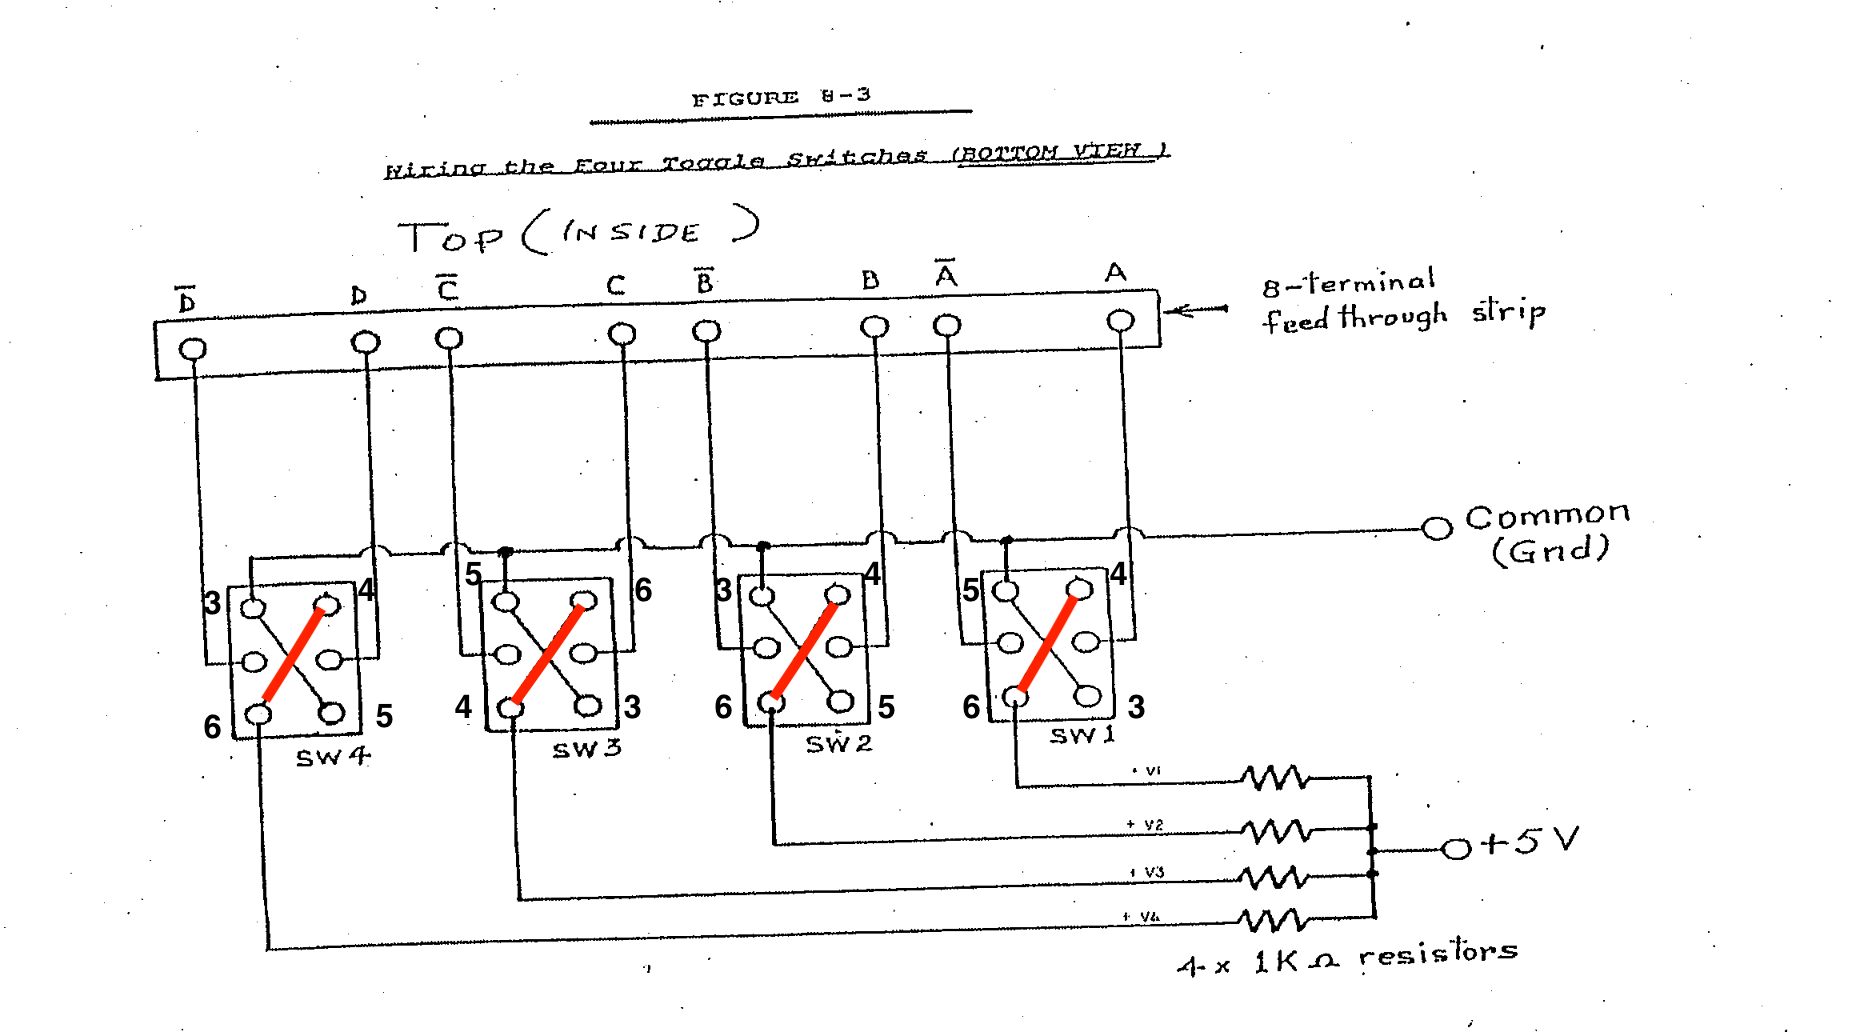 FIGURE 8-3
Wiring the Four Toggle Switches (BOTTOM VIEW)
TOP (INSIDE)
D̅ D C̅ C B̅ B A̅ A
8-terminal
feedthrough strip
Common
(Gnd)
3 4 5 6 3 4 5 4
6 5 4 3 6 5 6 3
SW4 SW3 SW2 SW1
+ V1
+ V2
+ V3
+ V4
+5V
4 x 1K Ω resistors